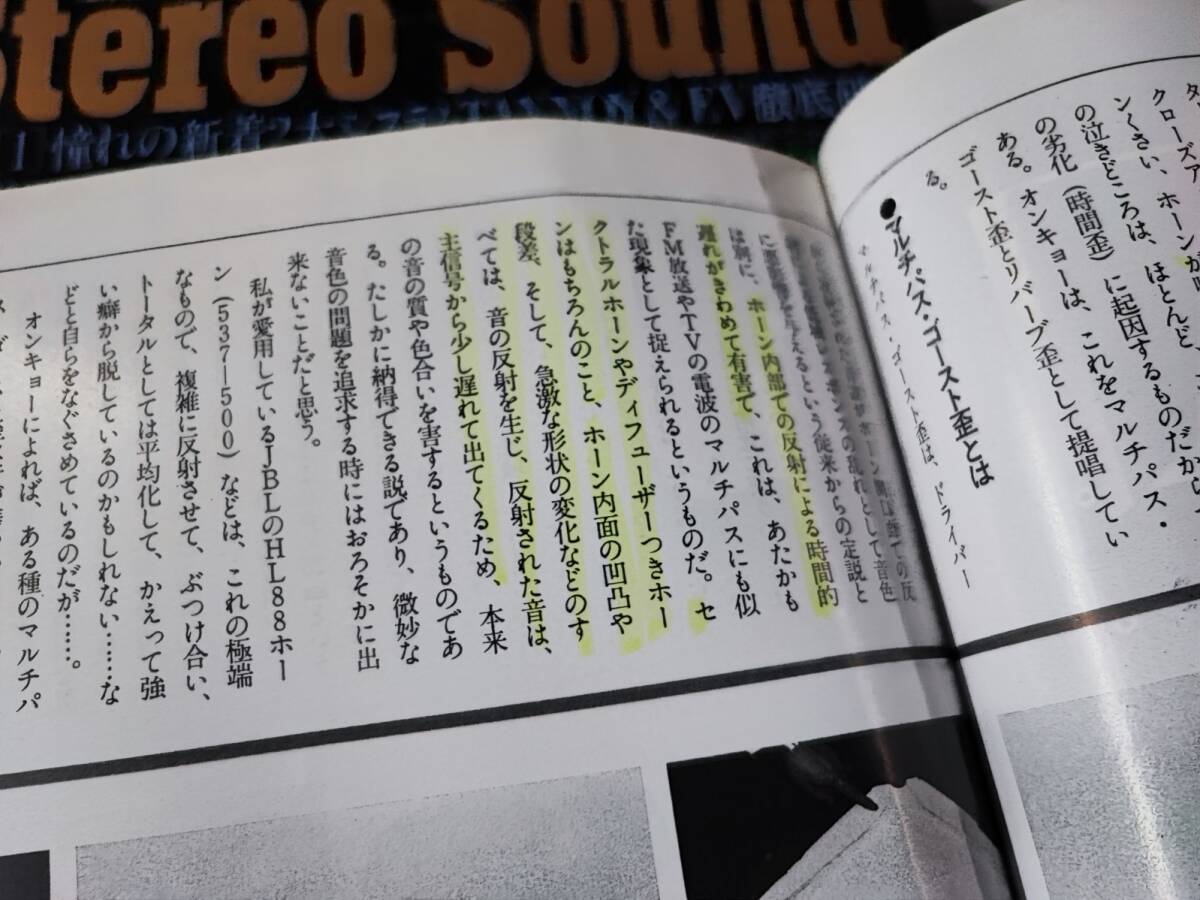 Stereo Sound
憧れの新着2大
TANNOY & EV 徹底研
クローズア
ンくさい、ホーンが
の泣きどころは、ほとんど、
の劣化（時間歪）に起因するものだから
ある。オンキョーは、これをマルチパス・
ゴースト歪とリバーブ歪として提唱してい
る。
●マルチパス・ゴースト歪とは
マルチパス・ゴースト歪は、ドライバー
に悪影響を与えるという従来からの定説と
は別に、ホーン内部での反射による時間的
遅れがきわめて有害で、これは、あたかも
FM放送やTVの電波のマルチパスにも似
た現象として捉えられるというものだ。セ
クトラルホーンやディフューザーつきホー
ンはもちろんのこと、ホーン内面の凹凸や
段差、そして、急激な形状の変化などのす
べては、音の反射を生じ、反射された音は、
主信号から少し遅れて出てくるため、本来
の音の質や色合いを害するというものであ
る。たしかに納得できる説であり、微妙な
音色の問題を追求する時にはおろそかに出
来ないことだと思う。
私が愛用しているJBLのHL88ホー
ン（537―500）などは、これの極端
なもので、複雑に反射させて、ぶつけ合い、
トータルとしては平均化して、かえって強
い癖から脱しているのかもしれない……な
どと自らをなぐさめているのだが……。
オンキョーによれば、ある種のマルチパ